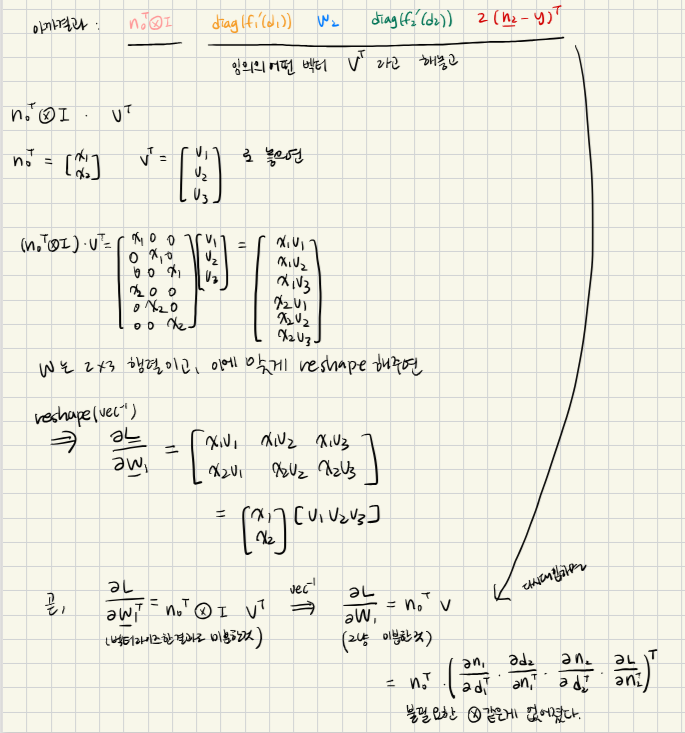 아까결과 : n₀ᵀ⊗I diag(f₁'(d₁)) W₂ diag(f₂'(d₂)) 2(n₂-y)ᵀ
임의의 어떤 벡터 Vᵀ 라고 해놓고
n₀ᵀ⊗I · Vᵀ
n₀ᵀ = [x₁ x₂] Vᵀ = [v₁ v₂ v₃] 로 놓으면
(n₀ᵀ⊗I)·Vᵀ = [x₁ 0 0; 0 x₁ 0; 0 0 x₁; x₂ 0 0; 0 x₂ 0; 0 0 x₂] [v₁ v₂ v₃] = [x₁v₁ x₁v₂ x₁v₃ x₂v₁ x₂v₂ x₂v₃]
W는 2×3 행렬이고, 이에 맞게 reshape 해주면
reshape(vec⁻¹)
⇒ ∂L/∂W₁ = [x₁v₁ x₁v₂ x₁v₃; x₂v₁ x₂v₂ x₂v₃]
= [x₁ x₂] [v₁ v₂ v₃]
다시대입하면
곧, ∂L/∂W₁ᵀ = n₀ᵀ⊗I Vᵀ vec⁻¹ ⇒ ∂L/∂W₁ = n₀ᵀ V
(벡터라이즈한결과로 미분한것) (그냥 미분한것)
= n₀ᵀ · (∂n₁/∂d₁ᵀ · ∂d₂/∂n₁ᵀ · ∂n₂/∂d₂ᵀ · ∂L/∂n₂ᵀ)ᵀ
불필요한 ⊗같은게 없어졌다.